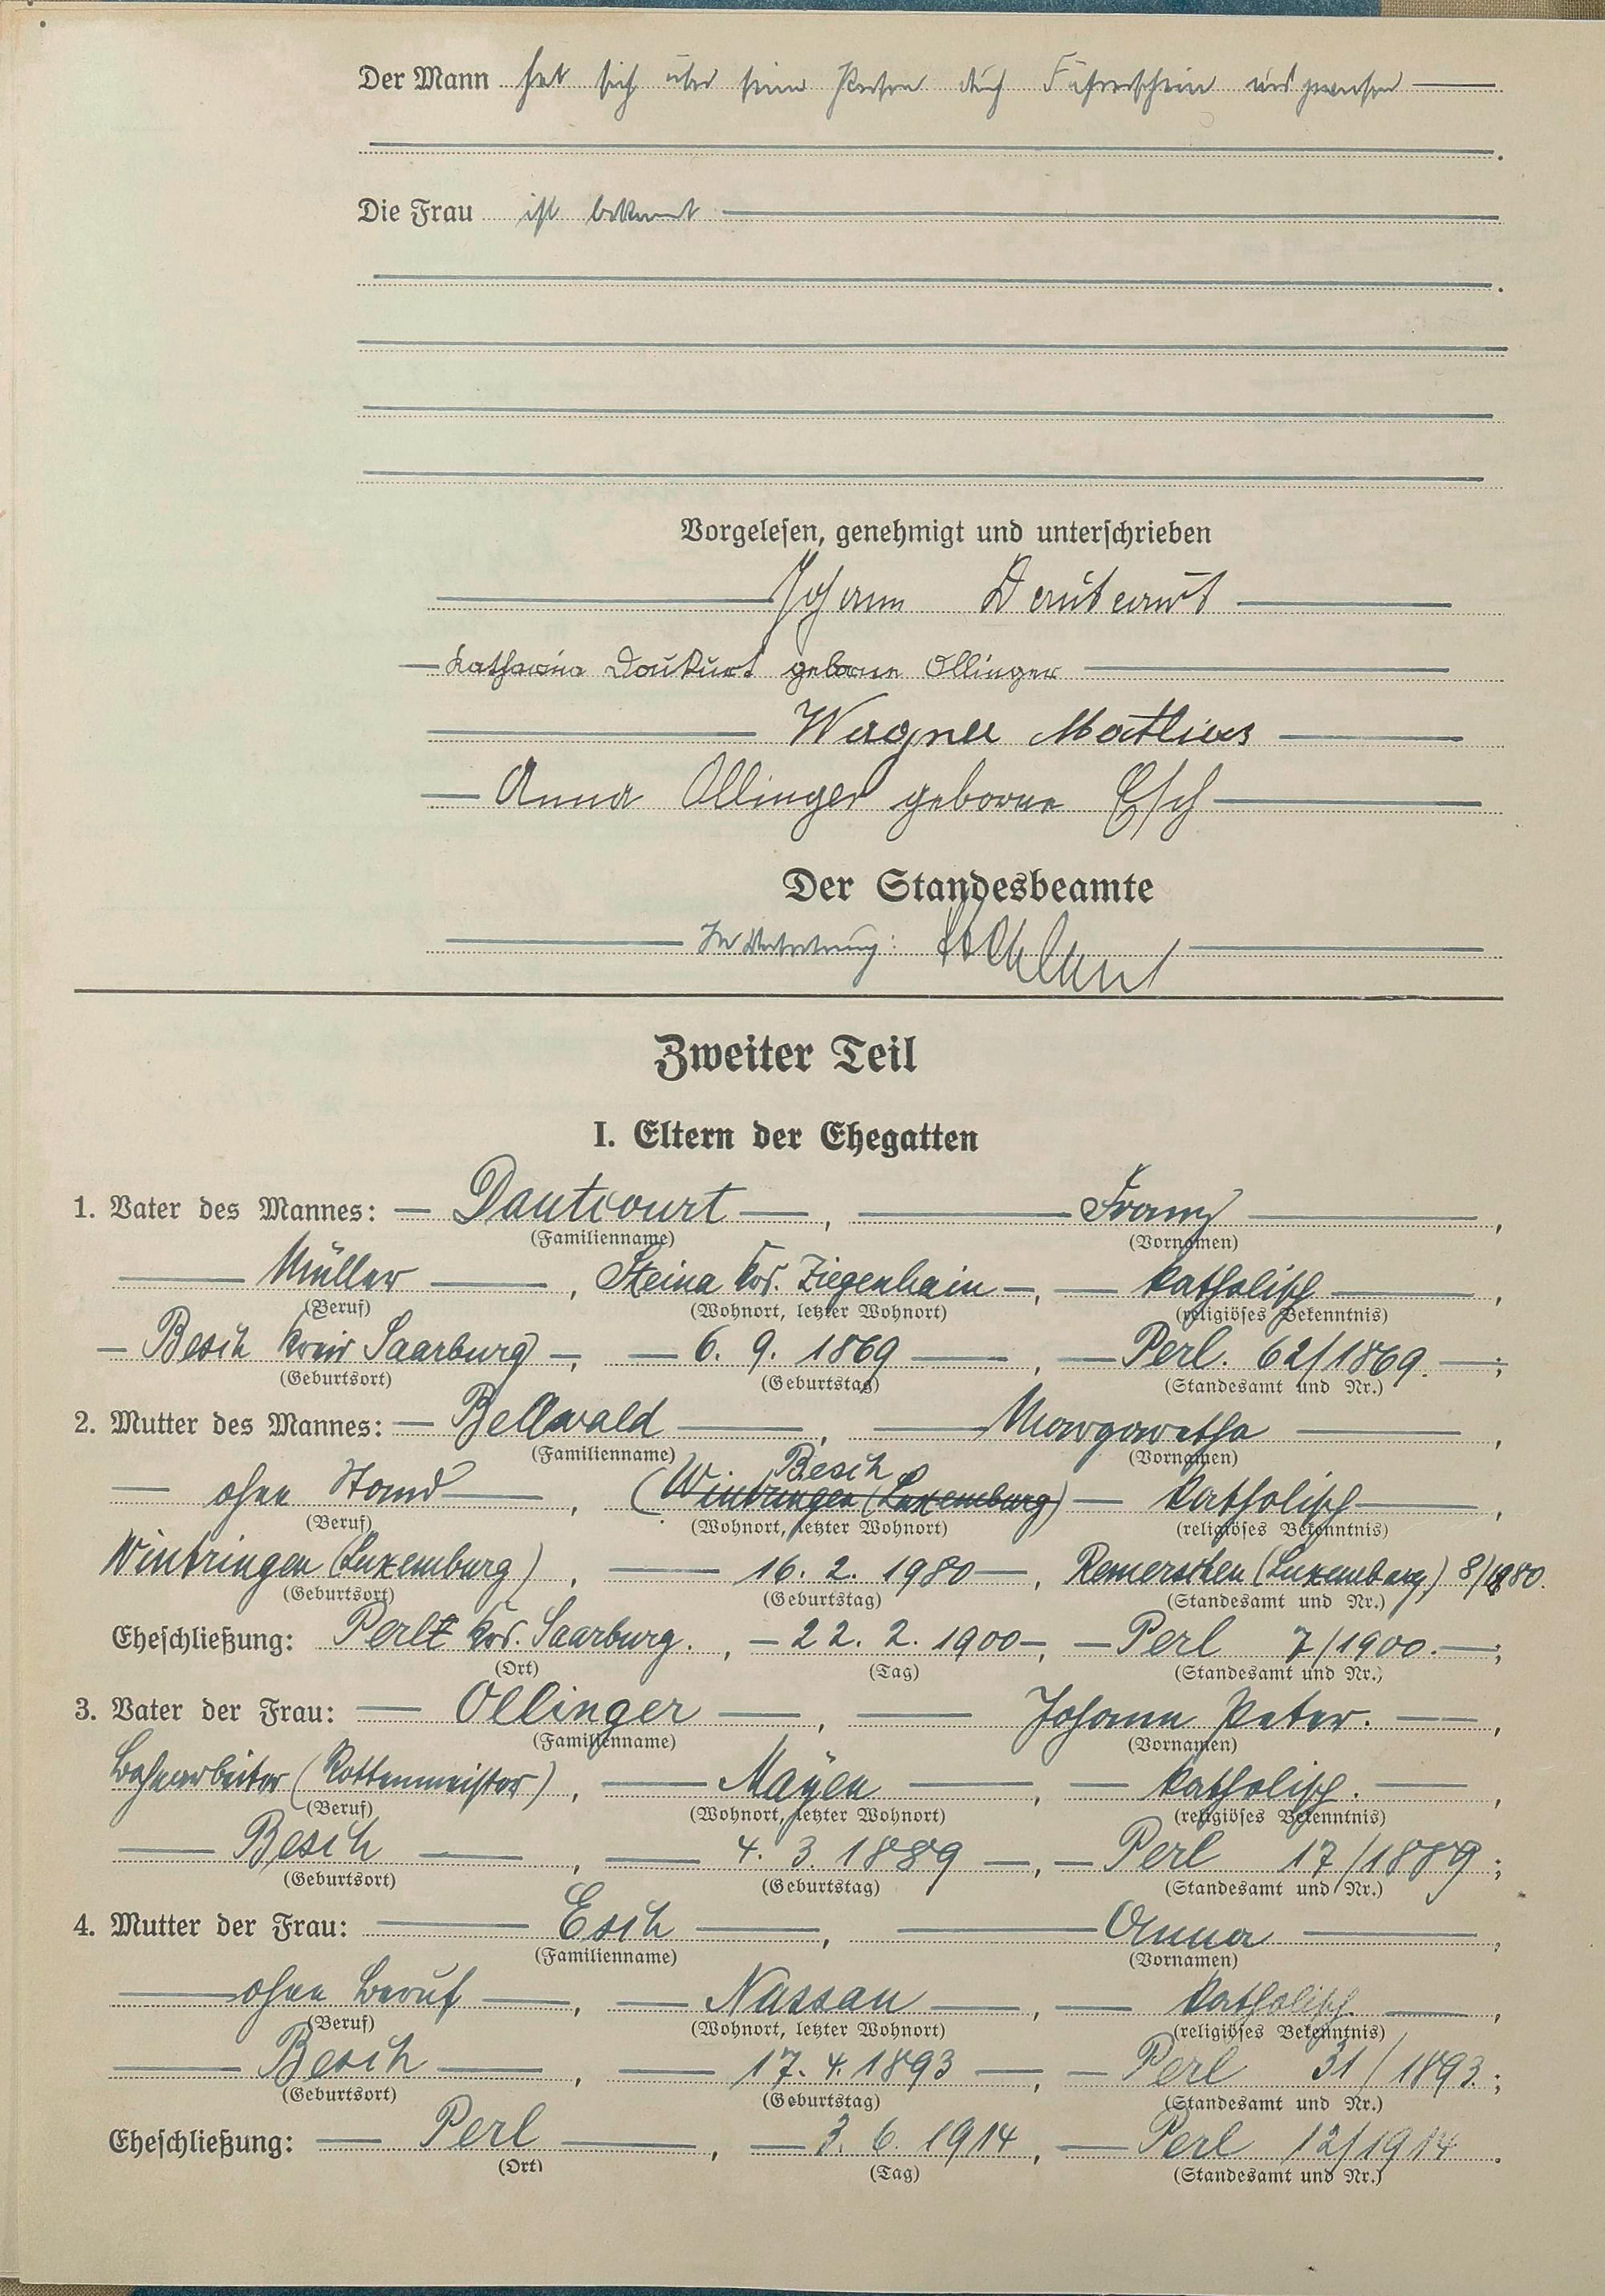 Der Mann hat sich über seine Person durch Führerschein ausgewiesen
Die Frau ist bekannt
Vorgelesen, genehmigt und unterschrieben
Johann Dautcourt
Katharina Doutcurt geborne Ollinger
Wagner Mathias
Anna Ollinger geborne Esch
Der Standesbeamte
In Vertretung:
Zweiter Teil
I. Eltern der Ehegatten
1. Vater des Mannes: Dautcourt, Franz,
(Familienname) (Vornamen)
Müller, Steina Krs. Ziegenhain, katholisch,
(Beruf) (Wohnort, letzter Wohnort) (religiöses Bekenntnis)
Besch Kreis Saarburg, 6. 9. 1869, Perl. 62/1869.;
(Geburtsort) (Geburtstag) (Standesamt und Nr.)
2. Mutter des Mannes: Bellwald, Margaretha,
(Familienname) (Vornamen)
Besch
ohne Stand, (Wintringen (Luxemburg) katholisch,
(Beruf) (Wohnort, letzter Wohnort) (religiöses Bekenntnis)
Wintringen (Luxemburg), 16. 2. 1980, Remerschen (Luxemburg) 8/1880.
(Geburtsort) (Geburtstag) (Standesamt und Nr.)
Eheschließung: Perl Krs. Saarburg., 22. 2. 1900, Perl 7/1900.;
(Ort) (Tag) (Standesamt und Nr.)
3. Vater der Frau: Ollinger, Johann Peter.,
(Familienname) (Vornamen)
Bahnarbeiter (Rottenmeister), Mayen, katholisch.,
(Beruf) (Wohnort, letzter Wohnort) (religiöses Bekenntnis)
Besch, 4. 3. 1889, Perl 17/1889;
(Geburtsort) (Geburtstag) (Standesamt und Nr.)
4. Mutter der Frau: Esch, Anna,
(Familienname) (Vornamen)
ohne Beruf, Nassau, katholisch.,
(Beruf) (Wohnort, letzter Wohnort) (religiöses Bekenntnis)
Besch, 17. 4. 1893, Perl 31/1893.;
(Geburtsort) (Geburtstag) (Standesamt und Nr.)
Eheschließung: Perl, 3. 6. 1914, Perl 12/1914.
(Ort) (Tag) (Standesamt und Nr.)